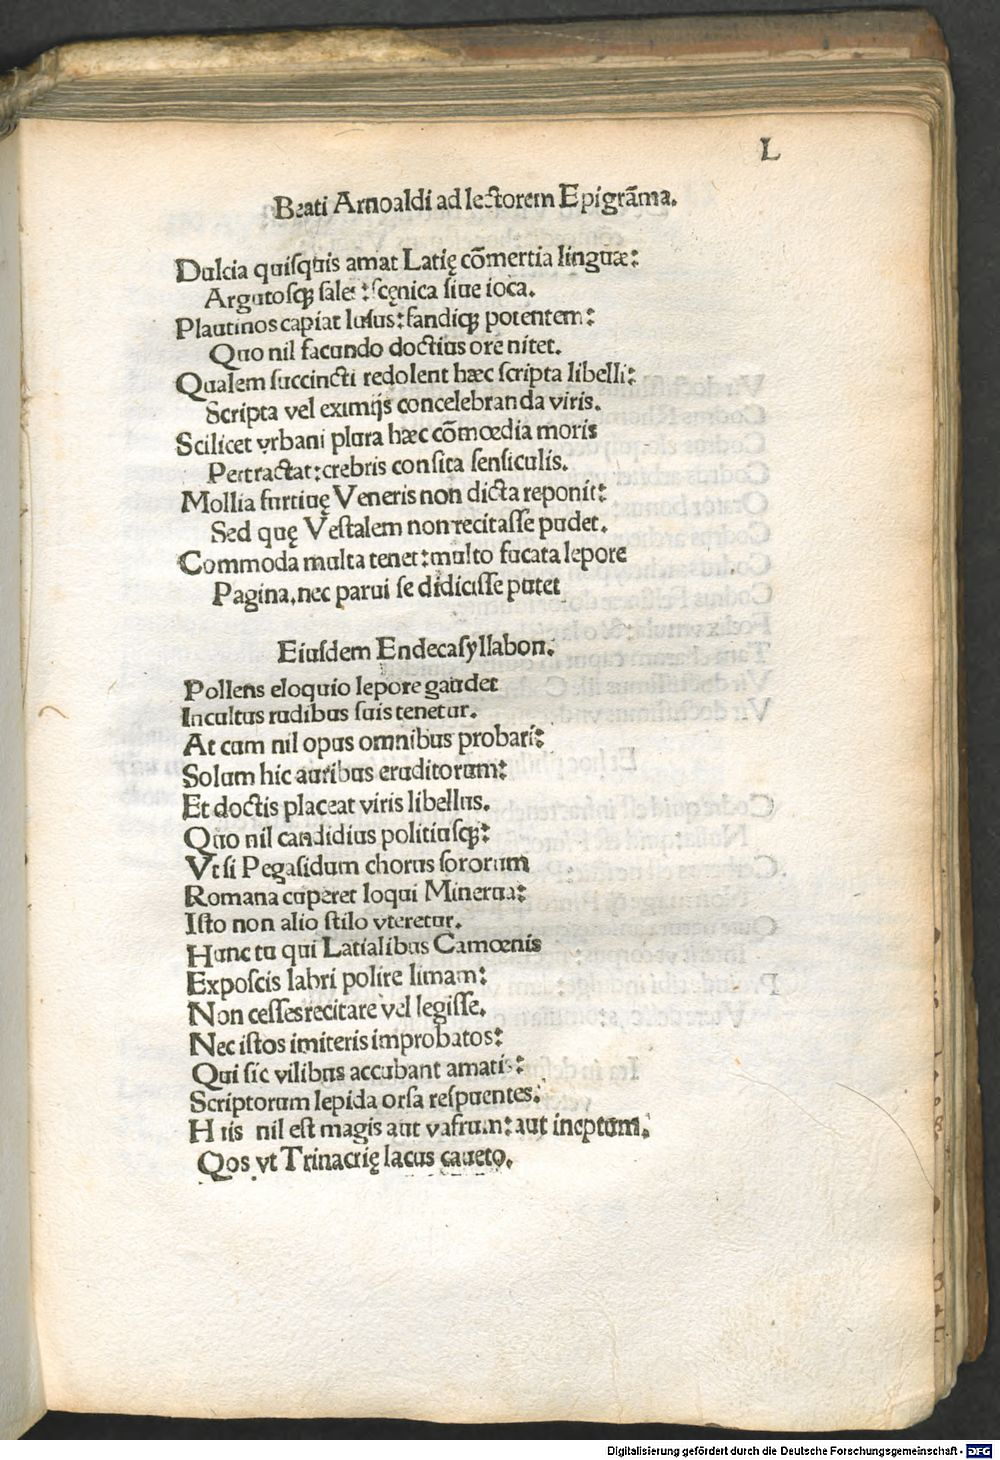 L
Beati Arnoaldi ad lectorem Epigrãma.
Dulcia quiſquis amat Latię cõmertia linguæ:
Argutoſqꝫ ſales: ſcęnica ſiue ioca.
Plautinos capiat luſus: fandiqꝫ potentem:
Quo nil facundo doctius ore nitet.
Qualem ſuccincti redolent hæc ſcripta libelli:
Scripta vel eximijs concelebranda viris.
Scilicet vrbani plura hæc cõmœdia moris
Pertractat: crebris conſita ſenſiculis.
Mollia furtiuę Veneris non dicta reponit:
Sed quę Veſtalem non recitaſſe pudet.
Commoda multa tenet: multo fucata lepore
Pagina, nec parui ſe didiciſſe putet
Eiuſdem Endecaſyllabon.
Pollens eloquio lepore gaudet
Incultus rudibus ſuis tenetur.
At cum nil opus omnibus probari:
Solum hic auribus eruditorum:
Et doctis placeat viris libellus.
Quo nil candidius politiuſqꝫ:
Vt ſi Pegaſidum chorus ſororum
Romana cuperet loqui Minerua:
Iſto non alio ſtilo vteretur.
Hunc tu qui Latialibus Camœnis
Expoſcis labri polire limam:
Non ceſſes recitare vel legiſſe.
Nec iſtos imiteris improbatos:
Qui ſic vilibus accubant amatis:
Scriptorum lepida orſa reſpuentes:
His nil eſt magis aut vafrum: aut ineptum.
Qos vt Trinacrię lacus caueto.
Digitalisierung gefördert durch die Deutsche Forschungsgemeinschaft - DFG